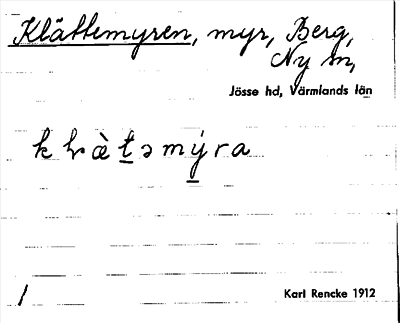 Klättemyren, myr, Berg,
Ny sn,
Jösse hd, Värmlands län
Karl Rencke 1912